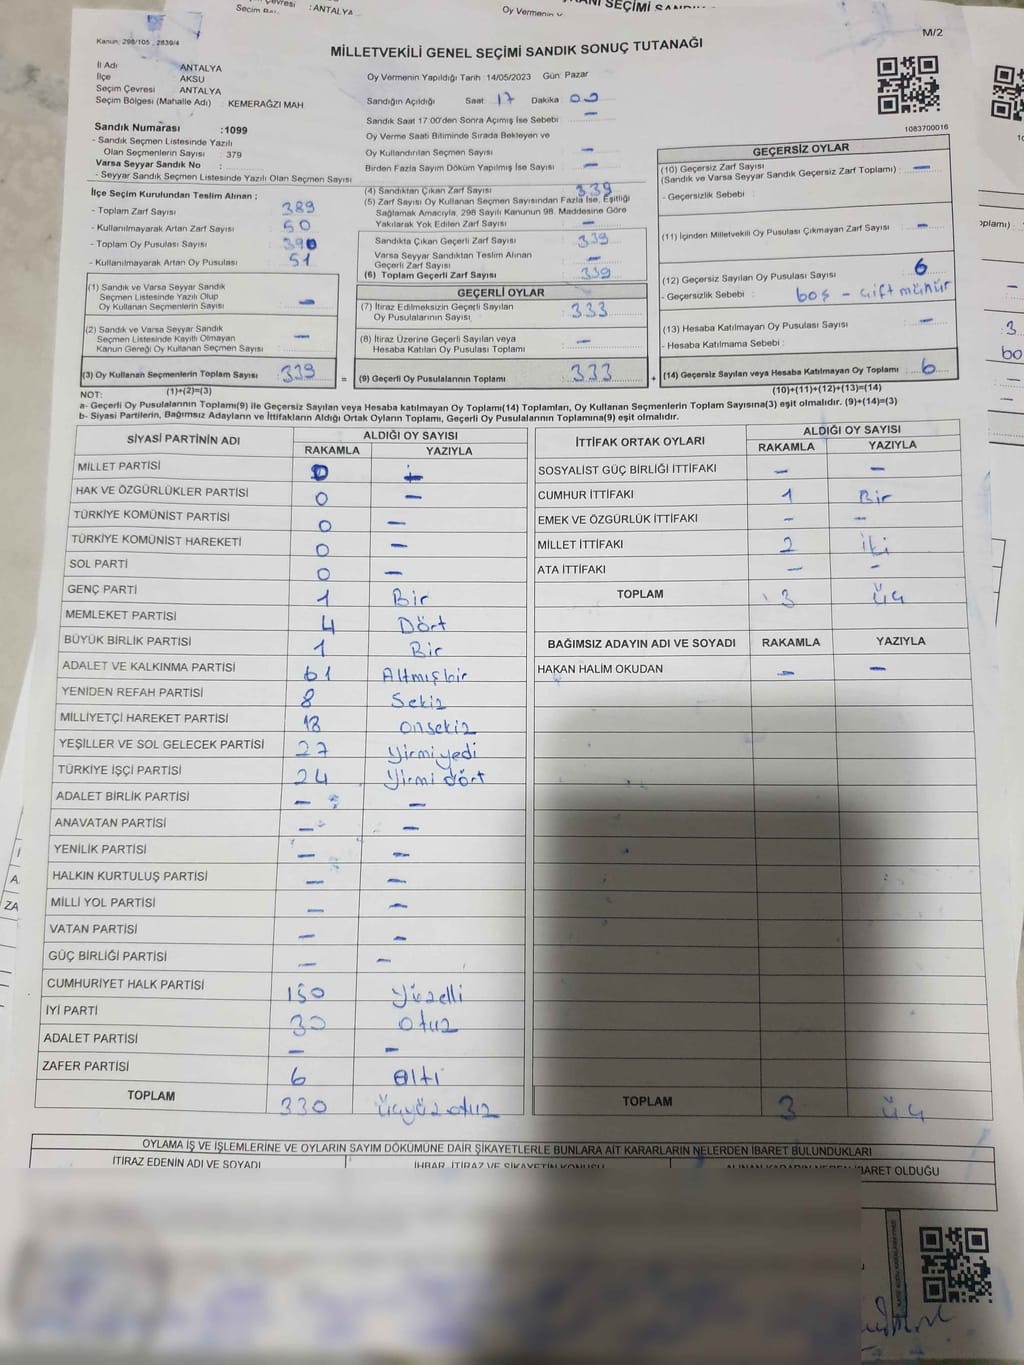 Seçim Çevresi : ANTALYA
Oy Vermenin
SEÇİMİ
Kanun: 298/105 , 2839/4
M/2
MİLLETVEKİLİ GENEL SEÇİMİ SANDIK SONUÇ TUTANAĞI
İl Adı ANTALYA
İlçe AKSU
Seçim Çevresi ANTALYA
Seçim Bölgesi (Mahalle Adı) : KEMERAĞZI MAH
Sandık Numarası :1099
- Sandık Seçmen Listesinde Yazılı
Olan Seçmenlerin Sayısı : 379
Varsa Seyyar Sandık No :
- Seyyar Sandık Seçmen Listesinde Yazılı Olan Seçmen Sayısı
Oy Vermenin Yapıldığı Tarih :14/05/2023 Gün: Pazar
Sandığın Açıldığı Saat: 17 Dakika : 00
Sandık Saat 17:00'den Sonra Açımış İse Sebebi: –
Oy Verme Saati Bitiminde Sırada Bekleyen ve
Oy Kullandırılan Seçmen Sayısı –
Birden Fazla Sayım Döküm Yapılmış İse Sayısı –
1083700016
İlçe Seçim Kurulundan Teslim Alınan :
- Toplam Zarf Sayısı 389
- Kullanılmayarak Artan Zarf Sayısı 50
- Toplam Oy Pusulası Sayısı 390
- Kullanılmayarak Artan Oy Pusulası 51
(1) Sandık ve Varsa Seyyar Sandık
Seçmen Listesinde Yazılı Olup
Oy Kullanan Seçmenlerin Sayısı –
(2) Sandık ve Varsa Seyyar Sandık
Seçmen Listesinde Kayıtlı Olmayan
Kanun Gereği Oy Kullanan Seçmen Sayısı –
(3) Oy Kullanan Seçmenlerin Toplam Sayısı 339
(1)+(2)=(3)
(4) Sandıktan Çıkan Zarf Sayısı 339
(5) Zarf Sayısı Oy Kullanan Seçmen Sayısından Fazla İse, Eşitliği
Sağlamak Amacıyla, 298 Sayılı Kanunun 98. Maddesine Göre
Yakılarak Yok Edilen Zarf Sayısı –
Sandıkta Çıkan Geçerli Zarf Sayısı 339
Varsa Seyyar Sandıktan Teslim Alınan
Geçerli Zarf Sayısı –
(6) Toplam Geçerli Zarf Sayısı 339
GEÇERLİ OYLAR
(7) İtiraz Edilmeksizin Geçerli Sayılan
Oy Pusulalarının Sayısı 333
(8) İtiraz Üzerine Geçerli Sayılan veya
Hesaba Katılan Oy Pusulası Toplamı –
= (9) Geçerli Oy Pusulalarının Toplamı 333 +
GEÇERSİZ OYLAR
(10) Geçersiz Zarf Sayısı
(Sandık ve Varsa Seyyar Sandık Geçersiz Zarf Toplamı) : –
- Geçersizlik Sebebi :
(11) İçinden Milletvekili Oy Pusulası Çıkmayan Zarf Sayısı –
(12) Geçersiz Sayılan Oy Pusulası Sayısı 6
- Geçersizlik Sebebi : boş – çift mühür
(13) Hesaba Katılmayan Oy Pusulası Sayısı –
- Hesaba Katılmama Sebebi :
(14) Geçersiz Sayılan veya Hesaba Katılmayan Oy Toplamı 6
(10)+(11)+(12)+(13)=(14)
NOT:
a- Geçerli Oy Pusulalarının Toplamı(9) ile Geçersiz Sayılan veya Hesaba katılmayan Oy Toplamı(14) Toplamları, Oy Kullanan Seçmenlerin Toplam Sayısına(3) eşit olmalıdır. (9)+(14)=(3)
b- Siyasi Partilerin, Bağımsız Adayların ve İttifakların Aldığı Ortak Oyların Toplamı, Geçerli Oy Pusulalarının Toplamına(9) eşit olmalıdır.
SİYASİ PARTİNİN ADI ALDIĞI OY SAYISI
RAKAMLA YAZIYLA
MİLLET PARTİSİ 0 –
HAK VE ÖZGÜRLÜKLER PARTİSİ 0 –
TÜRKİYE KOMÜNİST PARTİSİ 0 –
TÜRKİYE KOMÜNİST HAREKETİ 0 –
SOL PARTİ 0 –
GENÇ PARTİ 1 Bir
MEMLEKET PARTİSİ 4 Dört
BÜYÜK BİRLİK PARTİSİ 1 Bir
ADALET VE KALKINMA PARTİSİ 61 Altmışbir
YENİDEN REFAH PARTİSİ 8 Sekiz
MİLLİYETÇİ HAREKET PARTİSİ 18 onsekiz
YEŞİLLER VE SOL GELECEK PARTİSİ 27 Yirmiyedi
TÜRKİYE İŞÇİ PARTİSİ 24 Yirmi dört
ADALET BİRLİK PARTİSİ – –
ANAVATAN PARTİSİ – –
YENİLİK PARTİSİ – –
HALKIN KURTULUŞ PARTİSİ – –
MİLLİ YOL PARTİSİ – –
VATAN PARTİSİ – –
GÜÇ BİRLİĞİ PARTİSİ – –
CUMHURİYET HALK PARTİSİ 150 Yüzelli
İYİ PARTİ 30 otuz
ADALET PARTİSİ – –
ZAFER PARTİSİ 6 Altı
TOPLAM 330 üçyüz otuz
İTTİFAK ORTAK OYLARI ALDIĞI OY SAYISI
RAKAMLA YAZIYLA
SOSYALİST GÜÇ BİRLİĞİ İTTİFAKI – –
CUMHUR İTTİFAKI 1 Bir
EMEK VE ÖZGÜRLÜK İTTİFAKI – –
MİLLET İTTİFAKI 2 iki
ATA İTTİFAKI – –
TOPLAM 3 üç
BAĞIMSIZ ADAYIN ADI VE SOYADI RAKAMLA YAZIYLA
HAKAN HALİM OKUDAN – –
TOPLAM 3 üç
OYLAMA İŞ VE İŞLEMLERİNE VE OYLARIN SAYIM DÖKÜMÜNE DAİR ŞİKAYETLERLE BUNLARA AİT KARARLARIN NELERDEN İBARET BULUNDUKLARI
İTİRAZ EDENİN ADI VE SOYADI İHBAR, İTİRAZ VE ŞİKAYETİN KONUSU ALINAN KARARIN NEDEN İBARET OLDUĞU